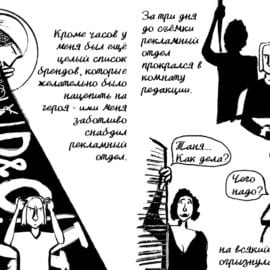 Кроме часов у
меня был ещё
целый список
брендов, которые
желательно было
нацепить на
героя - ими меня
заботливо
снабдил
рекламный
отдел.
За три дня
до съёмки
рекламный
отдел
прокрался в
комнату
редакции.
Таня...
Как дела?
Чего
надо?
на всякий